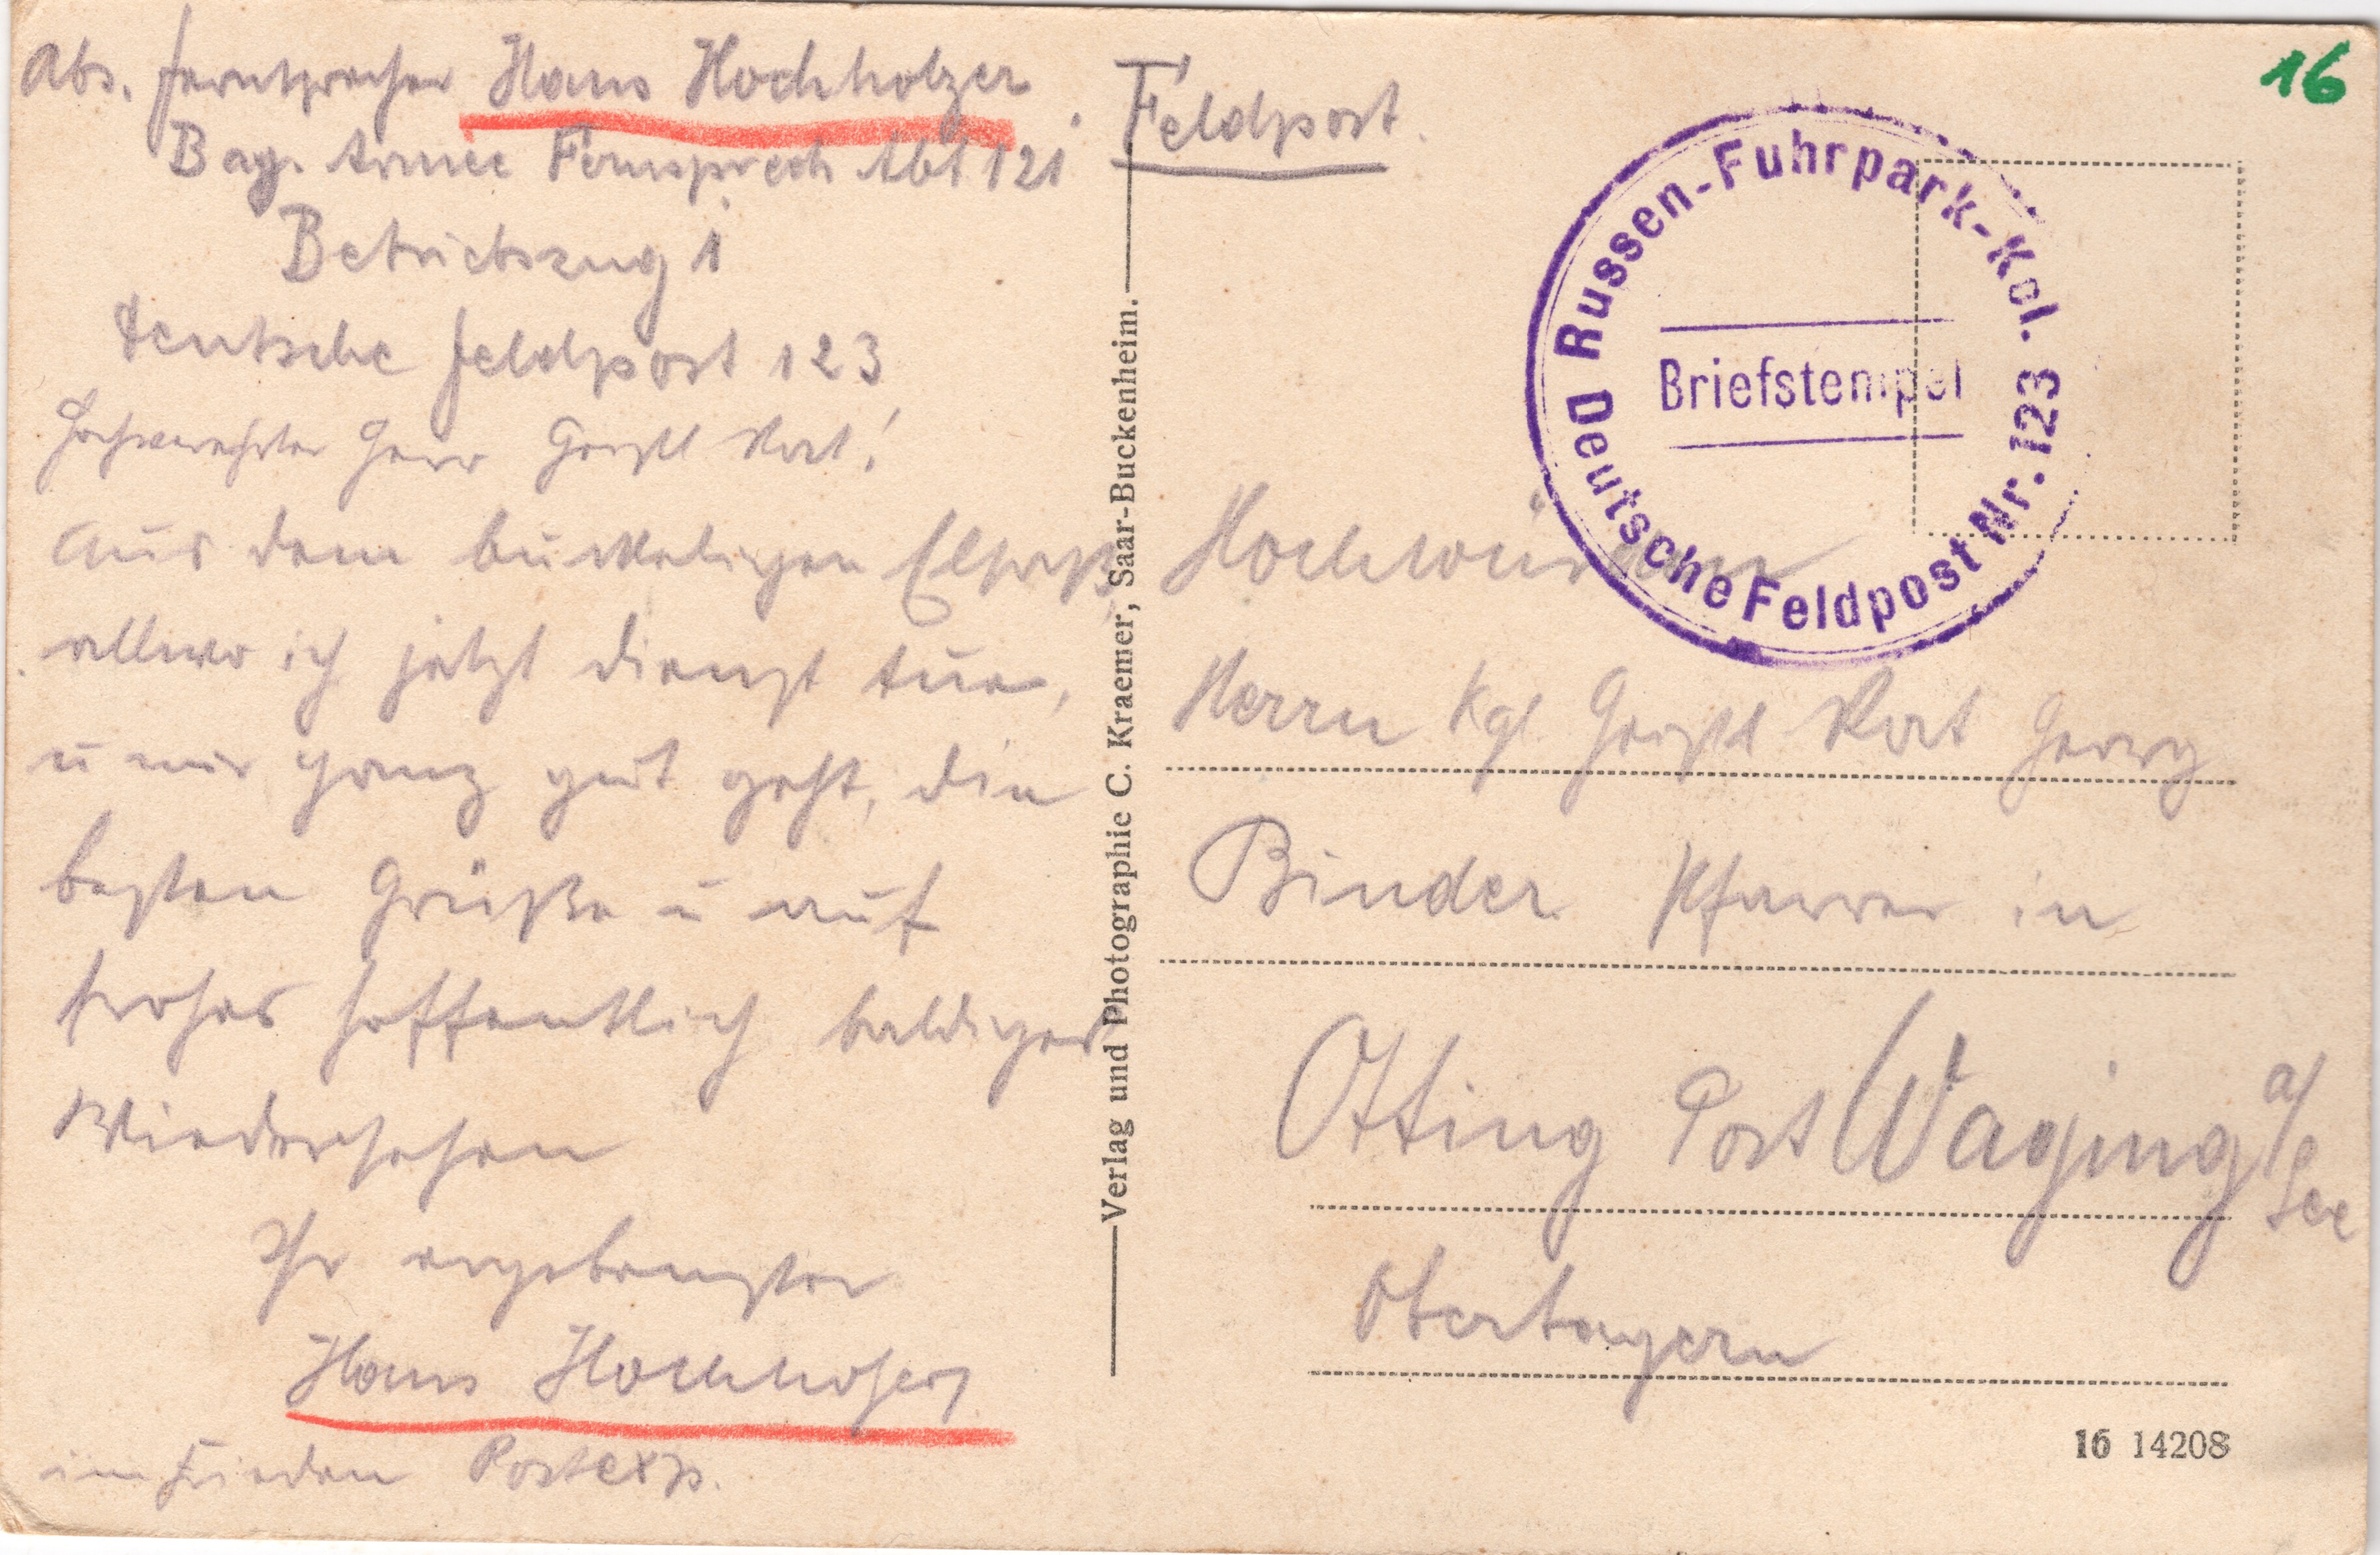 Abs. Fernsprecher Hans Hochholzer
Bay. Armee Fernsprech Abt 121
Betriebszug 1
Deutsche Feldpost 123
Hochverehrter Herr Geistl Rat!
Aus dem buckeligen Elsaß,
allwo ich jetzt Dienst tue,
u mir ganz gut geht, die
besten Grüße u auf
frohes hoffentlich baldiges
Wiedersehen
Ihr ergebenster
Hans
im Frieden Postexp.
Verlag und Photographie C. Kraemer, Saar-Buckenheim.
Feldpost.
16
Russen-Fuhrpark-Kol.
Briefstempel
Deutsche Feldpost Nr. 123
Hochwürden
Herrn Kgl. Geistl Rat Georg
Binder Pfarrer in
Otting Post Waging a/
See
Oberbayern
16 14208